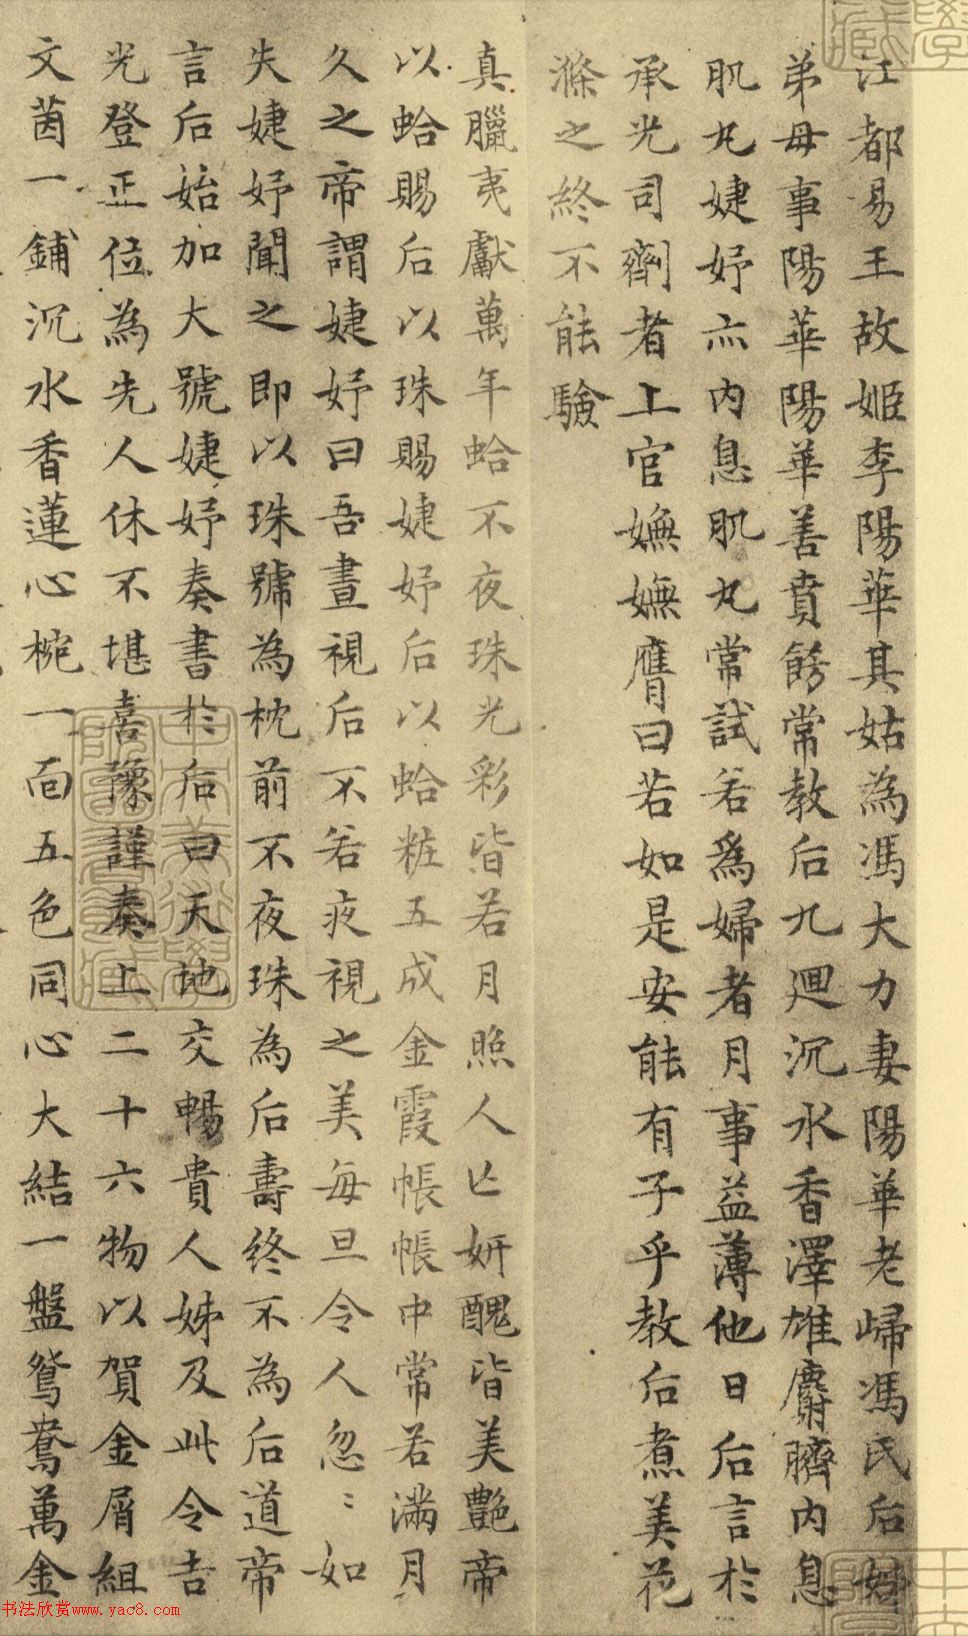 江都易王故姬李陽華其姑為馮大力妻陽華老歸馮氏后姊
弟母事陽華陽華善賁餙常教后九迴沉水香澤雄麝臍內息
肌丸婕妤亦內息肌丸常試若為婦者月事益薄他日后言於
承光司劑者上官嫵嫵膺曰若如是安能有子乎教后煮美花
滌之終不能驗
真臘夷獻萬年蛤不夜珠光彩皆若月照人亡妍醜皆美艷帝
以蛤賜后以珠賜婕妤后以蛤粧五成金霞帳帳中常若滿月
久之帝謂婕妤曰吾晝視后不若夜視之美每旦令人忽〻如
失婕妤聞之即以珠號為枕前不夜珠為后壽終不為后道帝
言后始加大號婕妤奏書於后曰天地交暢貴人姊及此令吉
光登正位為先人休不堪喜豫謹奏上二十六物以賀金屑組
文茵一鋪沉水香蓮心椀一面五色同心大結一盤鴛鴦萬金
书法欣赏www.yac8.com